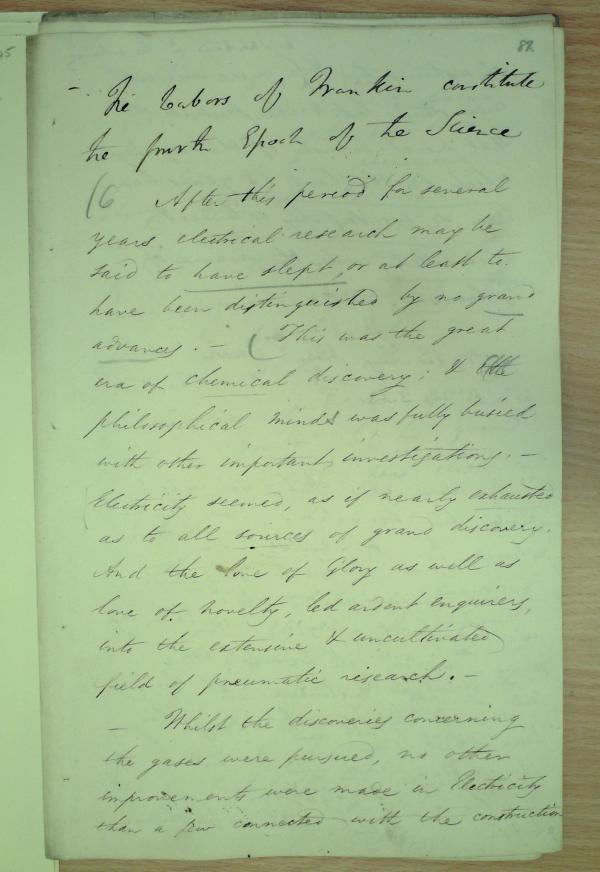 82.
- The Labors of Franklin constitute
the fourth Epoch of the Science
(6 After this period for several
years, electrical research may be
said to have slept, or at least to
have been distinguished by no grand
advances. - (This was the great
era of chemical discovery; & the
philosophical minds was fully busied
with other important investigations. -
Electricity seemed, as if nearly exhausted
as to all sources of grand discovery.
And the love of Glory as well as
love of novelty, led ardent enquirers,
into the extensive & uncultivated
field of pneumatic research. -
- Whilst the discoveries concerning
the gases were pursued, no other
improvements were made in Electricity
than a few connected with the construction